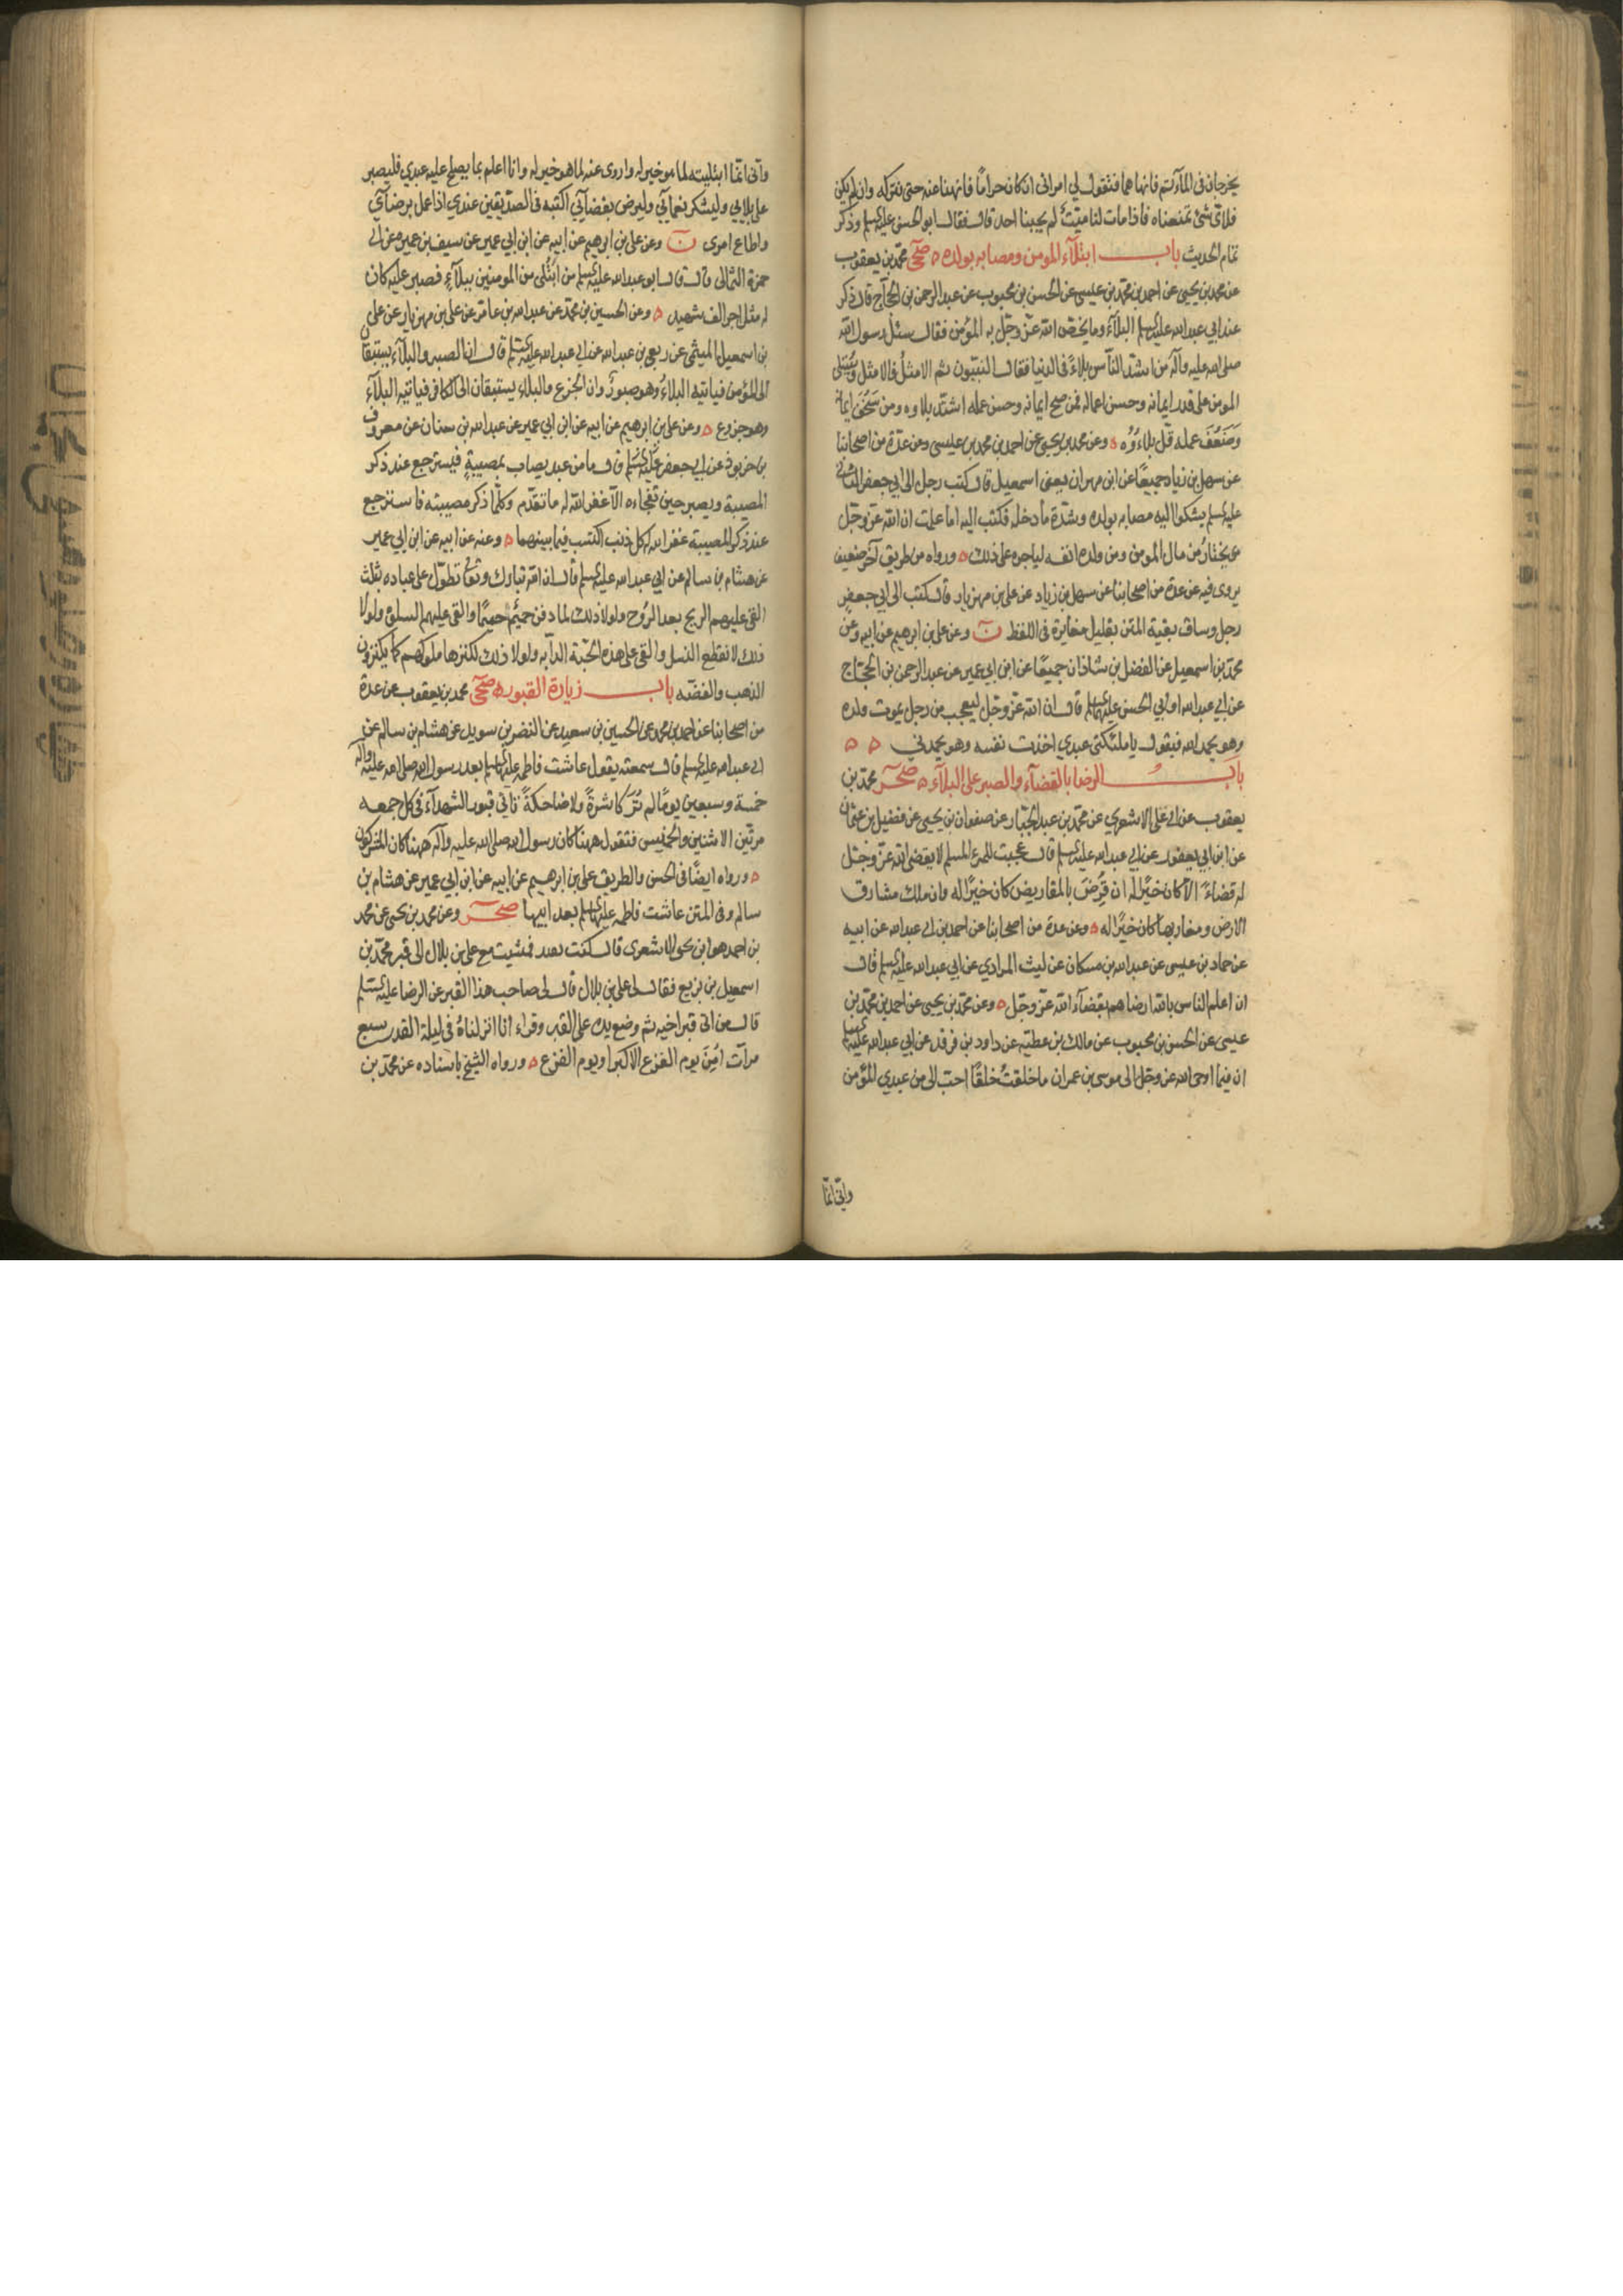 يخرجان فى المآتم فانهاهما فتقول لي امراتى ان كان حراما فانهنا عنه حتى نتركه وان لم يكن
فلاى شئ تمنعناه فاذا مات لنا ميّت لم يجبنا احد قال فقال ابو الحسن عليه السلم وذكر
تمام الحديث باب ابتلآء المومن ومصابه بولده ه صحى محمد بن يعقوب
عن محمد بن يحيى عن احمد بن محمد بن عيسى عن الحسن بن محبوب عن عبد الرحمن بن الحجاج قال ذكر
عند ابي عبد الله عليه السلم البلآء وما يخص الله عزّ وجلّ به المؤمن فقال سئل رسول الله
صلى الله عليه وآله من اشد الناس بلاءً فى الدنيا فقال النبيّون ثم الامثلُ فالامثل ويُبتلى
المومن على قدر ايمانه وحسن اعماله فمن صح ايمانه وحسن عمله اشتدّ بلاوه ومن سَخُفَ ايمانه
وضَعُفَ عمله قلّ بلاءُوُه ه وعن محمد بن يحيى عن احمد بن محمد بن عيسى وعن عدّة من اصحابنا
عن سهل بن زياد جميعًا عن ابن مهران يعنى اسمعيل قال كتب رجل الى ابي جعفر الثانى
عليه السلم يشكوا اليه مصابه بولده وشدّة ما دخله فكتب اليه اما علمت ان الله عزّ وجلّ
يختارُ من مال المومن ومن ولده انفسه لياجره على ذلك ه ورواه من طريق آخر ضعيف
يروى فيه عن عدة من اصحابنا عن سهل بن زياد عن على بن مهزيار قال كتب الى ابي جعفر
رجل وساق بقية المتن بقليل مغايرة فى اللفظ ن وعن على بن ابرهيم عن ابيه وعن
محمد بن اسمعيل عن الفضل بن شاذان جميعًا عن ابن ابي عمير عن عبد الرحمن بن الحجّاج
عن ابي عبد الله او ابي الحسن عليهما السلم قال ان الله عزّ وجلّ ليعجب من رجل يموت ولده
وهو يحمد الله فيقول يا ملئكتى عبدي اخذت نفسه وهو يحمدني ه ه
باب الرضا بالقضآء والصبر على البلآء ه صحر محمد بن
يعقوب عن ابي على الاشعري عن محمد بن عبد الجبّار عن صفوان بن يحيى عن فضيل بن عثمان
عن ابن ابي يعفور عن ابي عبد الله عليه السلم قال عجبت للمرء المسلم لا يقضى الله عزّ وجلّ
له قضاءً الا كان خيرًا له ان قُرِضَ بالمقاريض كان خيرًا له وان ملك مشارق
الارض ومغاربها كان خيرًا له ه وعن عدة من اصحابنا عن احمد بن ابي عبد الله عن ابيه
عن حماد بن عيسى عن عبد الله بن مسكان عن ليث المرادي عن ابي عبد الله عليه السلم قال
ان اعلم الناس بالله ارضاهم بقضآء الله عزّ وجلّ ه وعن محمد بن يحيى عن احمد بن محمد بن
عيسى عن الحسن بن محبوب عن مالك بن عطيّه عن داود بن فرقد عن ابي عبد الله عليه السلم
ان فيما اوحى الله عز وجل الى موسى بن عمران ما خلقتُ خلقًا احبّ الى من عبدي المؤمن
وانى انّما
وانى انّما ابتليته لما هو خير له وازوى عنه لما هو خير له وانا اعلم بما يصلح عليه عبدي فليصبر
على بلائي وليشكر نعمآئي وليرض بقضآئي اكتبه فى الصدّيقين عندي اذا عمل برضآئي
واطاع امرى ن وعن على بن ابرهيم عن ابيه عن ابن ابي عمير عن سيف بن عميره عن ابي
حمزة الثمالى قال قال ابو عبد الله عليه السلم من ابتُلى من المومنين ببلآءٍ فصبر عليه كان
له مثل اجر الف شهيد ه وعن الحسين بن محمد عن عبد الله بن عامر عن على بن مهزيار عن على
بن اسمعيل الميثمى عن ربعى بن عبد الله عن ابي عبد الله عليه السلم قال ان الصبر والبلآء يستبقان
الى المؤمن فياتيه البلاءُ وهو صبورٌ وان الجزع والبلاء يستبقان الى الكافر فياتيه البلآء
وهو جزوع ه وعن على بن ابرهيم عن ابيه عن ابن ابي عمير عن عبد الله بن سنان عن معروف
بن خربوذ عن ابي جعفر عليه السلم قال ما من عبد يصاب بمصيبةٍ فيسترجع عند ذكر
المصيبة ويصبر حين تفجاءه الا غفر الله له ما تقدّم وكلّما ذكر مصيبته فاسترجع
عند ذكر المصيبة غفر الله له كل ذنب اكتسب فيما بينهما ه وعنه عن ابيه عن ابن ابي عمير
عن هشام بن سالم عن ابي عبد الله عليه السلم قال ان الله تبارك وتعالى تطوّل على عباده بثلث
القى عليهم الريح بعد الرُوح ولولا ذلك لما دفن حميمٌ حميمًا والقى عليهم السلوة ولولا
ذلك لانقطع النسل والقى على هذه الحبّة الدآبه ولولا ذلك لكنزها ملوكهم كما يكنزون
الذهب والفضّه باب زيارة القبور ه صحى محمد بن يعقوب عن عدة
من اصحابنا عن احمد بن محمد عن الحسين بن سعيد عن النضر بن سويد عن هشام بن سالم عن
ابي عبد الله عليه السلم قال سمعته يقول عاشت فاطمه عليها السلم بعد رسول الله صلى الله عليه وآله
خمسة وسبعين يومًا لم تُرَ كاشرةً ولا ضاحكةً تاتي قبور الشهدآء فى كل جمعه
مرتين الاثنين والخميس فتقول ههنا كان رسول الله صلى الله عليه وآله ههنا كان المشركون
ه ورواه ايضًا فى الحسن والطريق على بن ابرهيم عن ابيه عن ابن ابي عمير عن هشام بن
سالم وفى المتن عاشت فاطمه عليها السلم بعد ابيها صحر وعن محمد بن يحيى عن محمد
بن احمد هو ابن يحيى الاشعرى قال كنت بفيد فمشيت مع على بن بلال الى قبر محمد بن
اسمعيل بن بزيع فقال لى على بن بلال قال لى صاحب هذا القبر عن الرضا عليه السلم
قال من اتى قبر اخيه ثم وضع يده على القبر وقراء انا انزلناهُ فى ليلة القدر سبع
مرات اَمِنَ يوم الفزع الاكبر او يوم الفزع ه ورواه الشيخ باسناده عن محمد بن